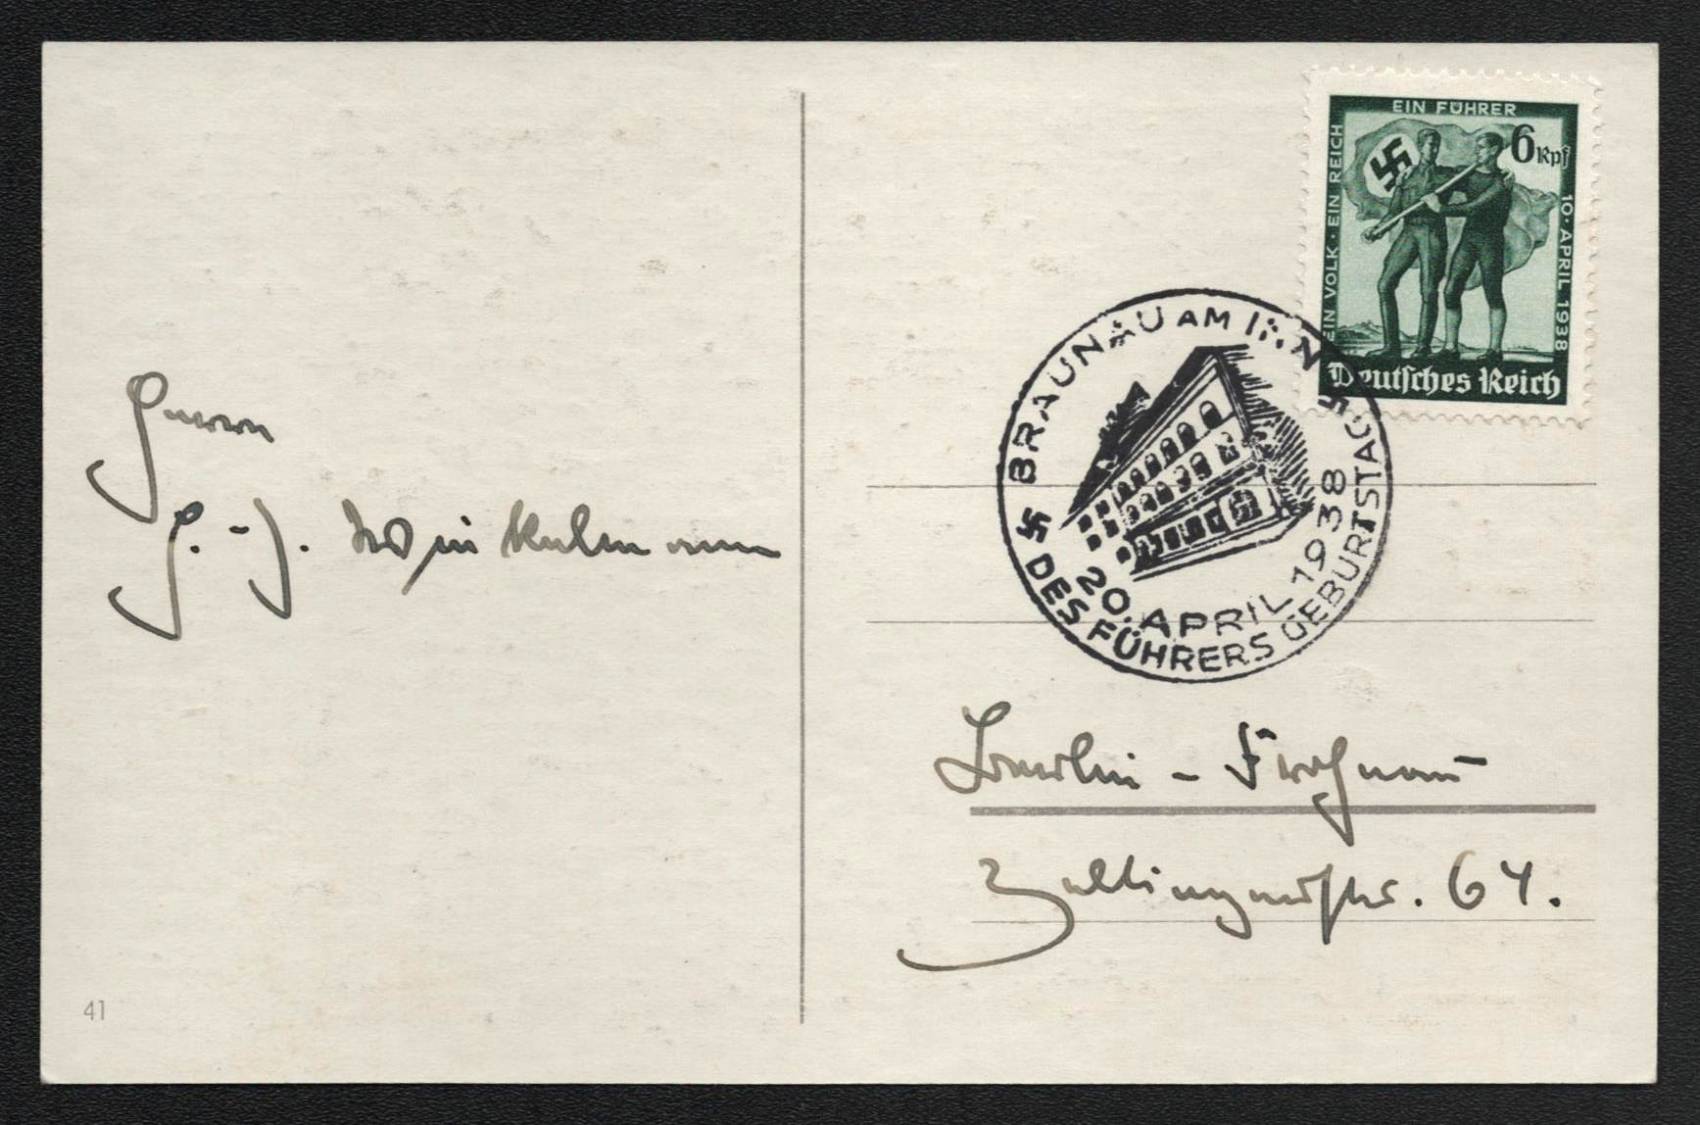 Herrn
H.-J. Winkelmann
41
EIN VOLK · EIN REICH
EIN FÜHRER
10. APRIL 1938
6 Rpf
Deutsches Reich
BRAUNAU AM INN
20. APRIL 1938
DES FÜHRERS GEBURTSTAG
Berlin - Frohnau
Zeltingerstr. 64.